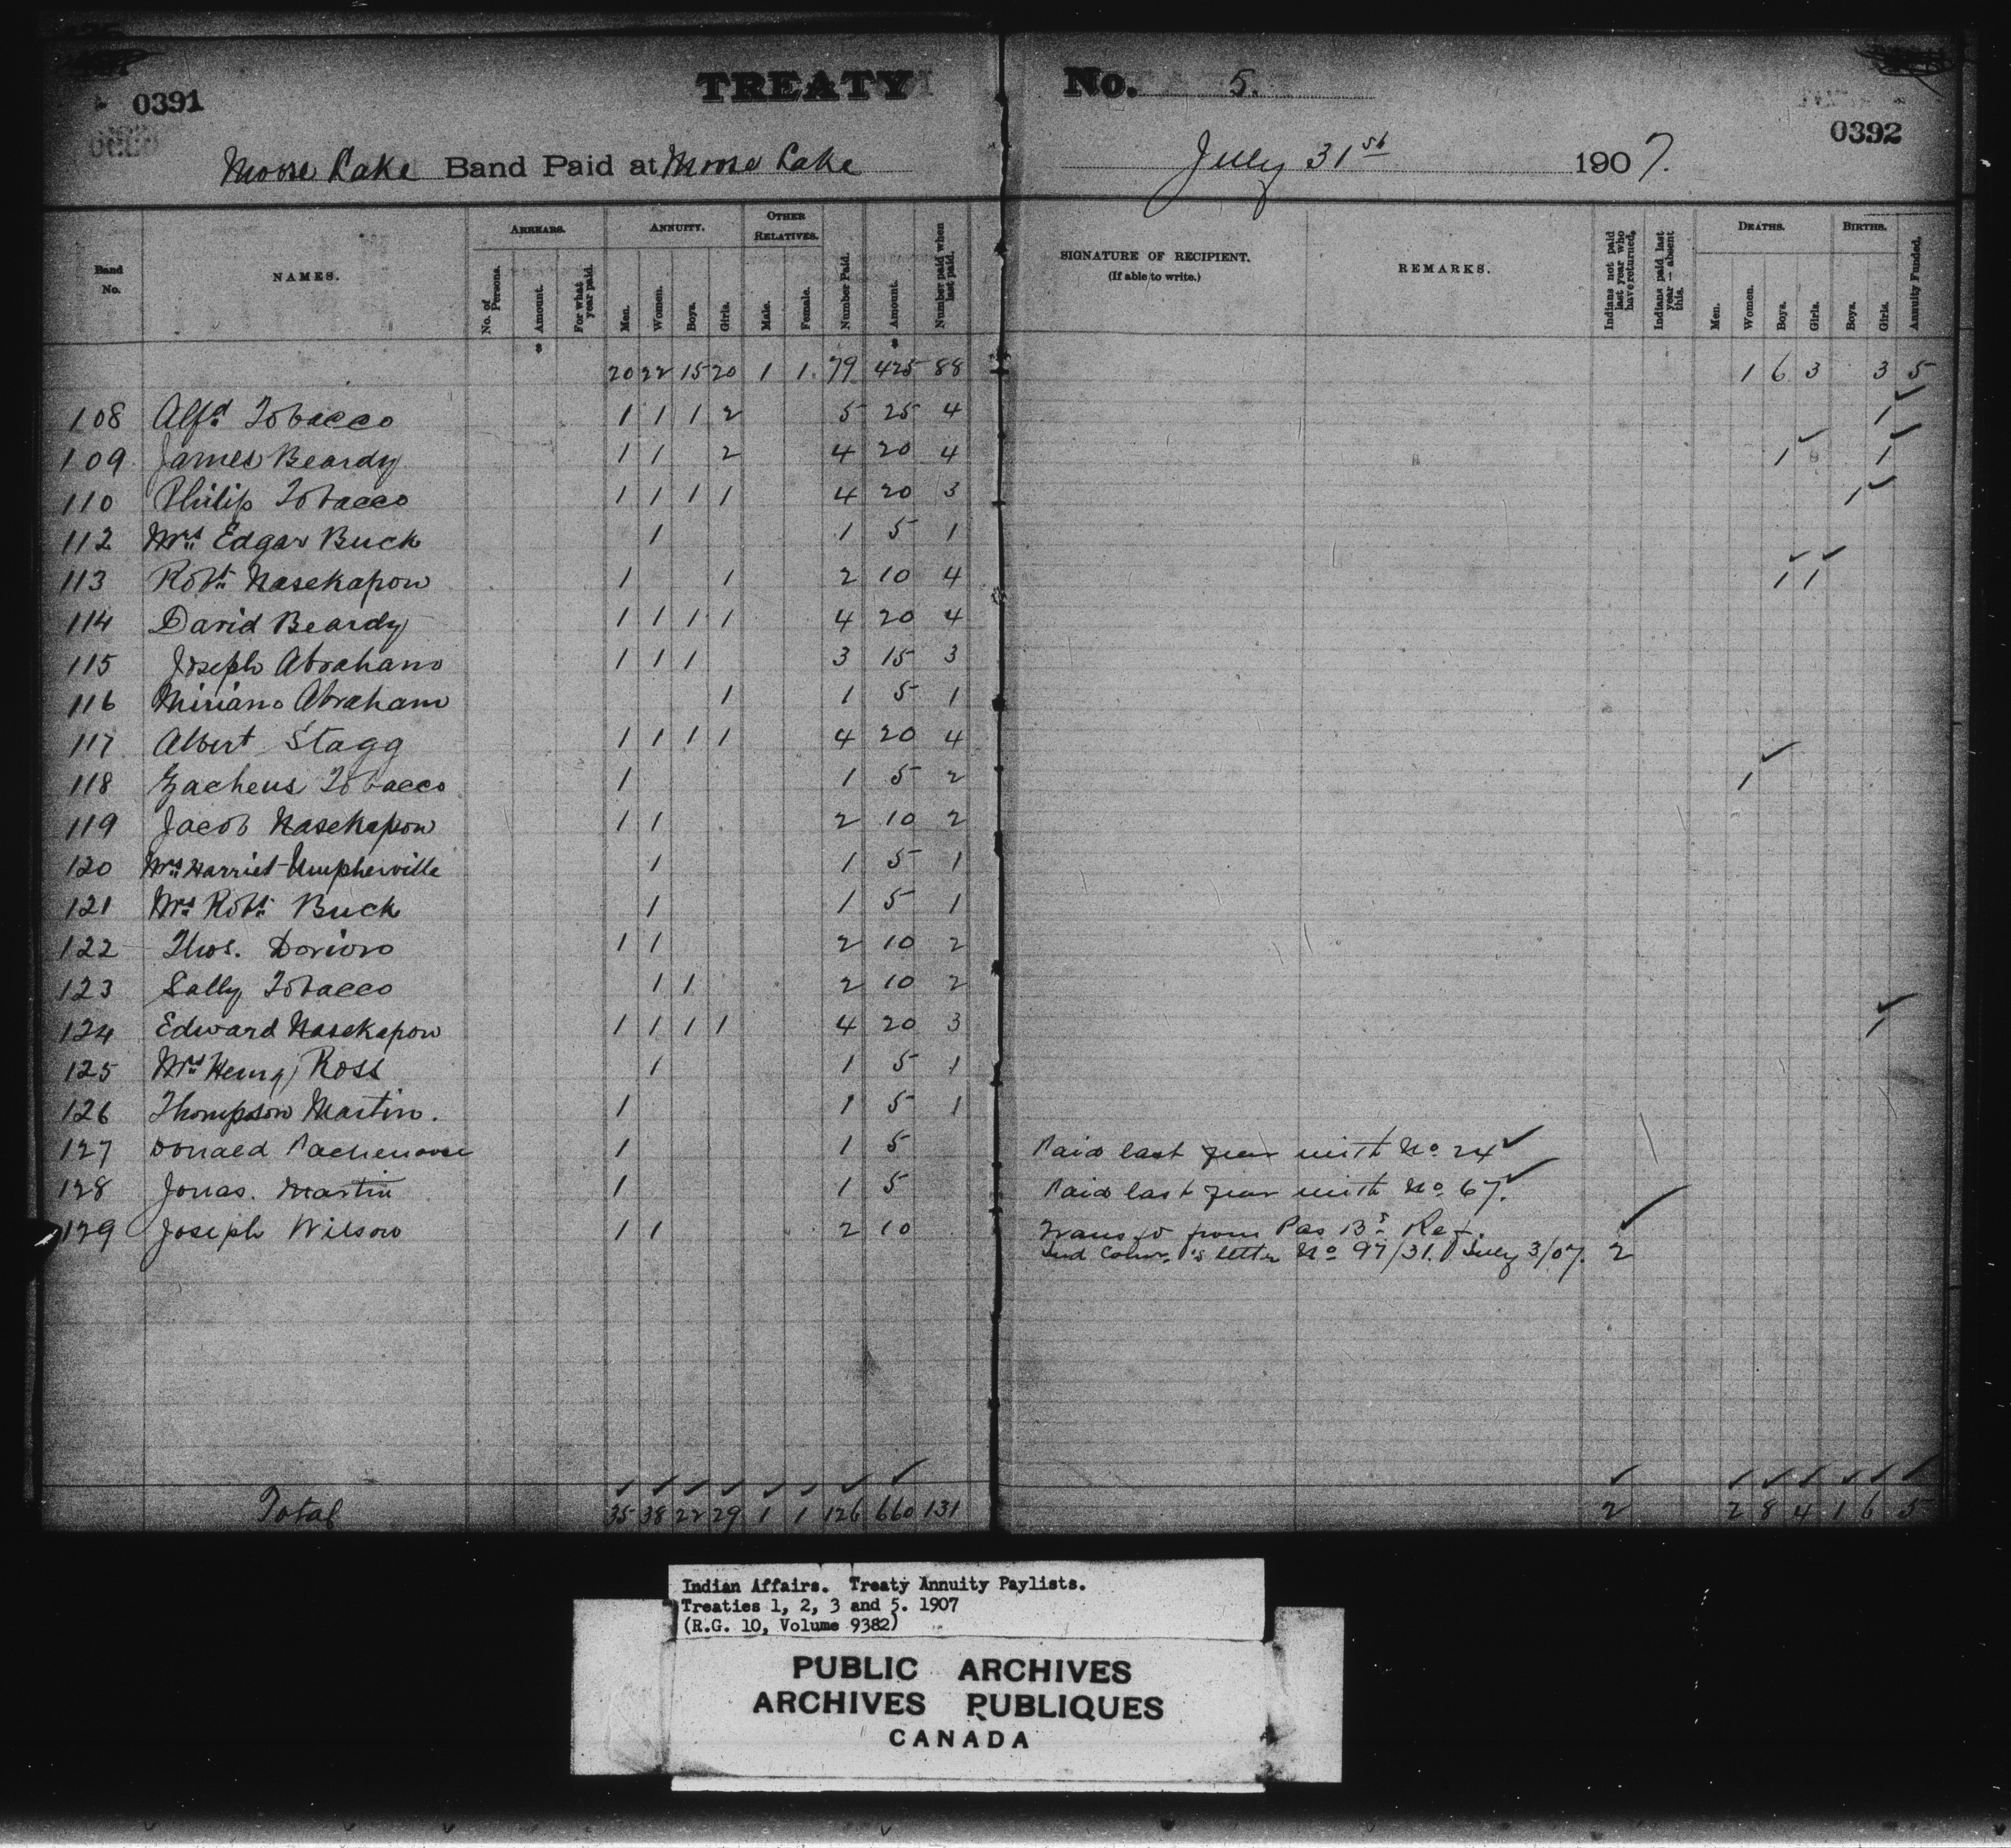 0391
TREATY No. 5.
0392
Moose Lake Band Paid at Moose Lake July 31st 1907.
Band No. NAMES. ARREARS. No. of Persons. Amount. For what year paid. ANNUITY. Men. Women. Boys. Girls. OTHER RELATIVES. Male. Female. Number Paid. Amount. Number paid when last paid. SIGNATURE OF RECIPIENT. (If able to write.) REMARKS. Indians not paid last year who have returned. Indians paid last year — absent this. DEATHS. Men. Women. Boys. Girls. BIRTHS. Boys. Girls. Annuity Funded.
$ $
20 22 15 20 1 1 79 425 88 1 6 3 3 5
108 Alfd Tobacco 1 1 1 2 5 25 4 1 ✓
109 James Beardy 1 1 2 4 20 4 1 ✓ 1 ✓
110 Philip Tobacco 1 1 1 1 4 20 3 1 ✓
112 Mrs Edgar Buck 1 1 5 1
113 Robt Nasekapow 1 1 2 10 4 1 ✓ 1 ✓
114 David Beardy 1 1 1 1 4 20 4
115 Joseph Abraham 1 1 1 3 15 3
116 Miriam Abraham 1 1 5 1
117 Albert Stagg 1 1 1 1 4 20 4
118 Zacheus Tobacco 1 1 5 2 1 ✓
119 Jacob Nasekapow 1 1 2 10 2
120 Mrs Harriet Umpherville 1 1 5 1
121 Mrs Robt Buck 1 1 5 1
122 Thos. 1 1 2 10 2
123 Sally Tobacco 1 1 2 10 2
124 Edward Nasekapow 1 1 1 1 4 20 3 1 ✓
125 Mrs Henry Ross 1 1 5 1
126 Thompson Martin. 1 1 5 1
127 Donald 1 1 5 Paid last year with No 24 ✓
128 Jonas. Martin 1 1 5 Paid last year with No 67. ✓
129 Joseph Wilson 1 1 2 10 Trans'd from Pas Bd Ref. ✓
Ind Comr.'s letter No 97/31. July 3/07. 2
✓ ✓ ✓ ✓ ✓ ✓ ✓ ✓ ✓ ✓ ✓ ✓ ✓ ✓ ✓
Total 35 38 22 29 1 1 126 660 131 2 2 8 4 1 6 5
Indian Affairs. Treaty Annuity Paylists.
Treaties 1, 2, 3 and 5. 1907
(R.G. 10, Volume 9382)
PUBLIC ARCHIVES
ARCHIVES PUBLIQUES
CANADA